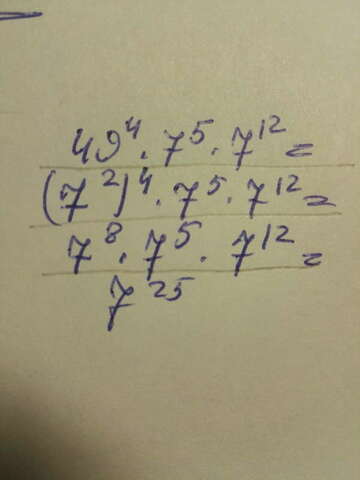 49⁴ · 7⁵ · 7¹² =
(7²)⁴ · 7⁵ · 7¹² =
7⁸ · 7⁵ · 7¹² =
7²⁵